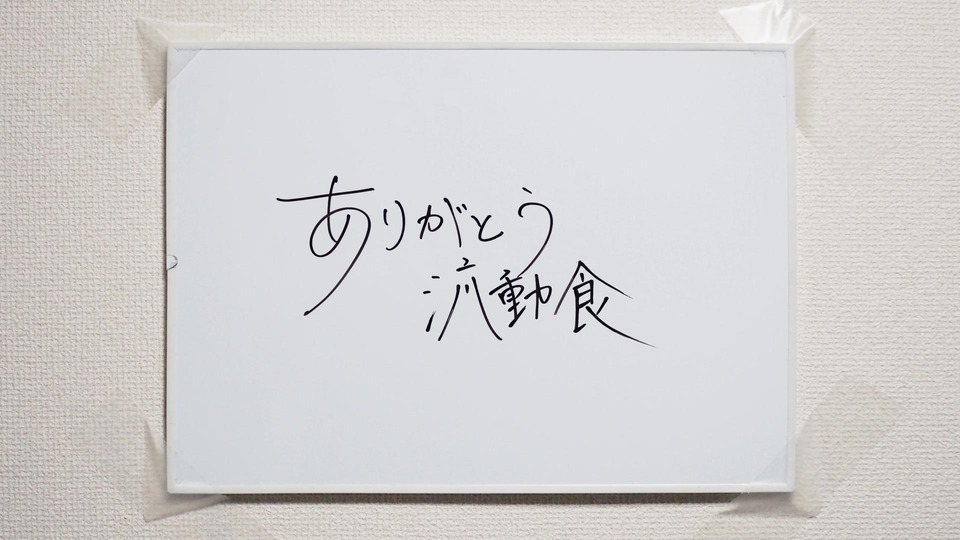 ありがとう
流動食